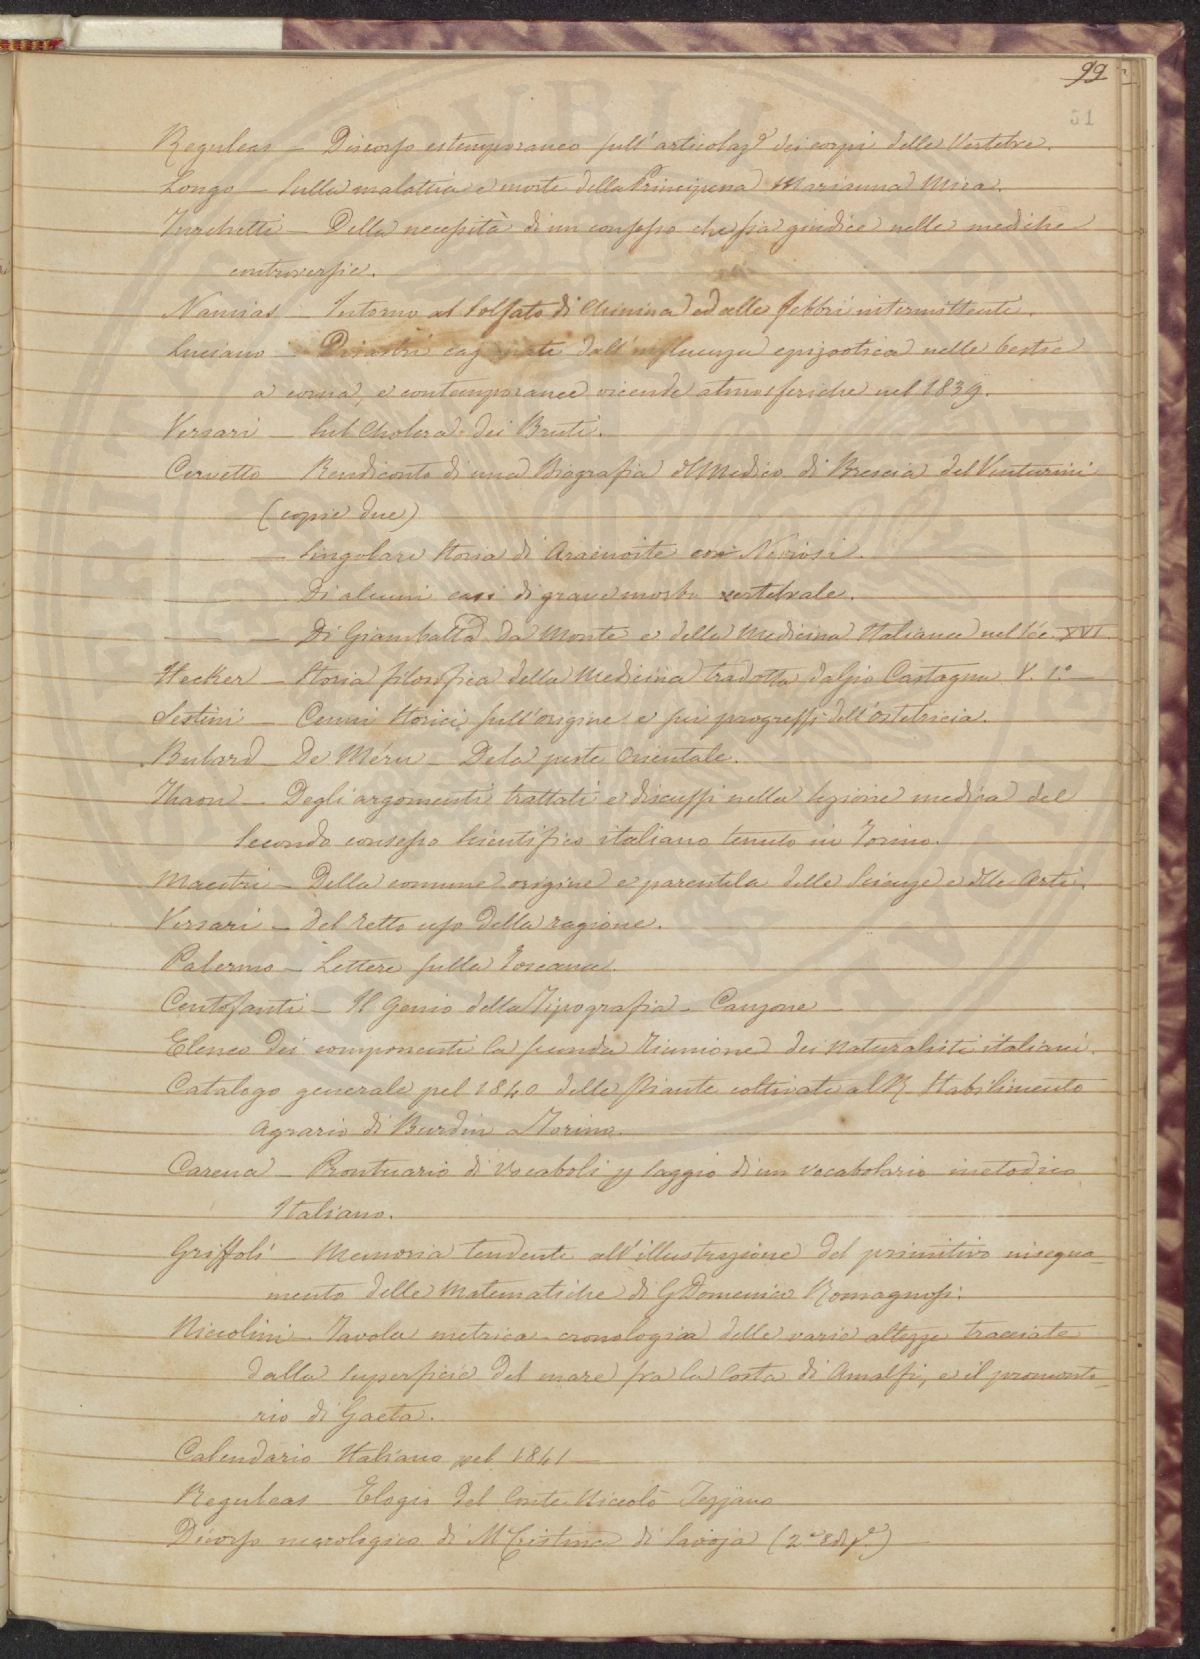 99
51
Reguleas — Discorso estemporaneo sull' articolaz.e dei corpi delle Vertebre.
Longo — Sulla malattia e morte della Principessa Marianna Mira.
Turchetti — Della necessità di un consesso che sia giudice nelle mediche
controversie.
Namias — Intorno al Solfato di Chinina ed alle febbri intermittenti.
Luciano — Disastri cagionati dall'influenza epizootica nelle bestie
a corna, e contemporanee vicende atmosferiche nel 1839.
Versari — Sul Cholera dei Bruti.
Cervetto — Rendiconto di una Biografia di Medico di Brescia del Venturini
(copie due)
— Singolare Storia di Aracnoite con Nevrosi.
— Di alcuni casi di grave morbo vertebrale.
— Di Giambatta Da Monte e della Medicina Italiana nel Sec. XVI.
Hecker — Storia filosofica della Medicina tradotta dal Castagna V. 1.o —
Sestini — Cenni Storici sull'origine e sui progressi dell'ostetricia.
Bulard — De Méru — De la peste Orientale.
Thaon — Degli argomenti trattati e discussi nella Sezione medica del
Secondo consesso Scientifico italiano tenuto in Torino.
Maestri — Della comune origine e parentela delle Scienze e delle Arti.
Versari — Del retto uso della ragione.
Palermo — Lettere sulla Toscana.
Centofanti — Il Genio della Tipografia — Canzone —
Elenco dei componenti la seconda Riunione dei Naturalisti italiani.
Catalogo generale pel 1840 delle Piante coltivate al R. Stabilimento
Agrario di Burdin a Torino.
Carena — Prontuario di Vocaboli p Saggio di un vocabolario metodico
Italiano.
Griffoli — Memoria tendente all'illustrazione del primitivo insegna-
mento delle Matematiche di G Domenico Romagnosi.
Niccolini — Tavola metrica-cronologica delle varie altezze tracciate
dalla Superficie del mare fra la Costa di Amalfi, e il promonto-
rio di Gaeta.
Calendario Italiano pel 1841 —
Reguleas — Elogio del Conte Niccolò Tezzano
Dicorso necrologico di M Cristina di Savoja (2.a Ediz.e) —